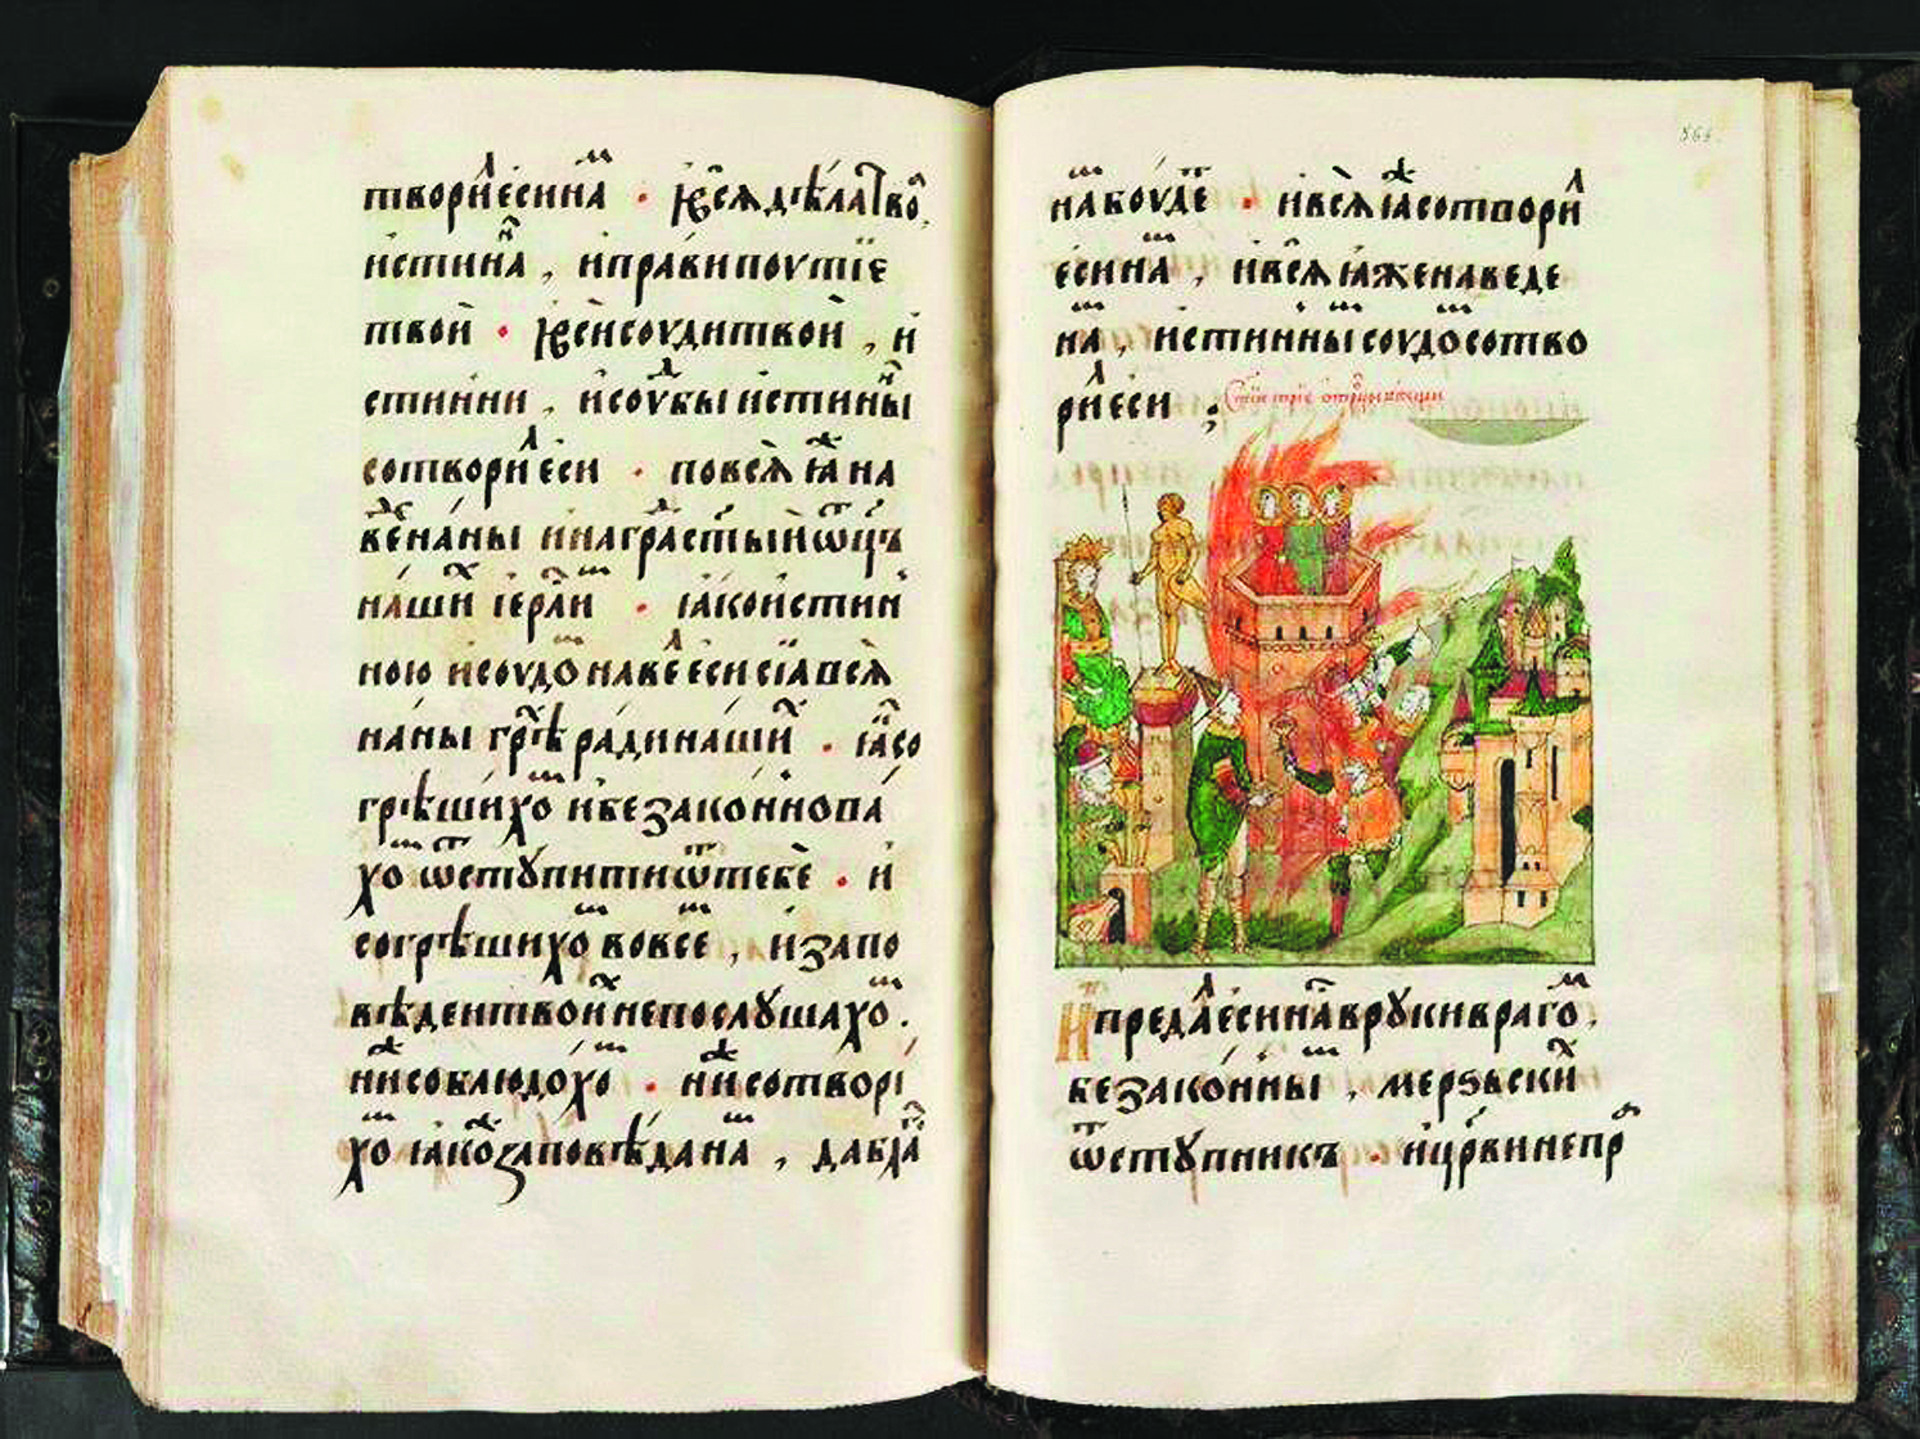 твори́ еси на . и҆ всѧ дѣла тво
и́стинна , и҆ прави поутїе
твои̏ . и҆ вси соуди твои̏ , и҆
стинни , и҆ соудбы и҆стинны
сотвори еси . по всѧ ꙗ҆ на
ве на́ны и҆ на гра ст҃ыи ѡ҃цъ
на́ши і҆ерлⷭ҇и . ꙗ҆ко и҆стин
ною и҆ соудо наве еси сїа всѧ
на́ны грѣ ра́ди на́ши . ꙗ҆ со
грѣши́хо и҆ беззако́ннова́
хо ѿстꙋпити ѿ тебе̏ . и҆
согрѣшихо во всe , и҆ запо
вѣдеи твои не послꙋшахо .
ни соблюдо́хо . ни сотворі
хо ꙗ҆ко заповѣ́да на , да бла
на боу́де . и҆ всѧ ꙗ҆ сотвори
еси на , и҆ всѧ ꙗ҆же наведе
на , и҆стинны соудо сотво
ри еси ;
И҆ преда еси на в рꙋки враго .
беззако́нны , мерзъски
ѿстꙋпникъ . и҆ цр҃ви непр